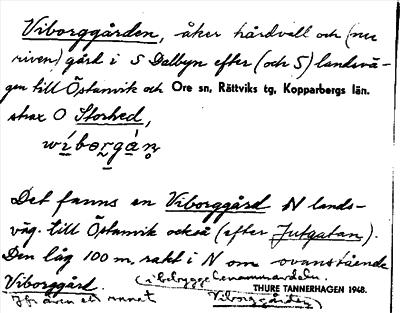 Viborggården, åker hårdvall och (nu
riven) gård i S Dalbyn efter (och S) landsvä-
gen till Östanvik och Ore sn, Rättviks tg, Kopparbergs län.
strax O Storhed,
wíbərgàn
Det fanns en Viborggård N lands-
väg. till Östanvik också (efter Jutgatan).
Den låg 100 m, rakt i N om ovanstående
Viborggård. (i bebyggelsenamnsavdeln.
THURE TANNERHAGEN 1948.
Jfr även ett annat Viborggården)